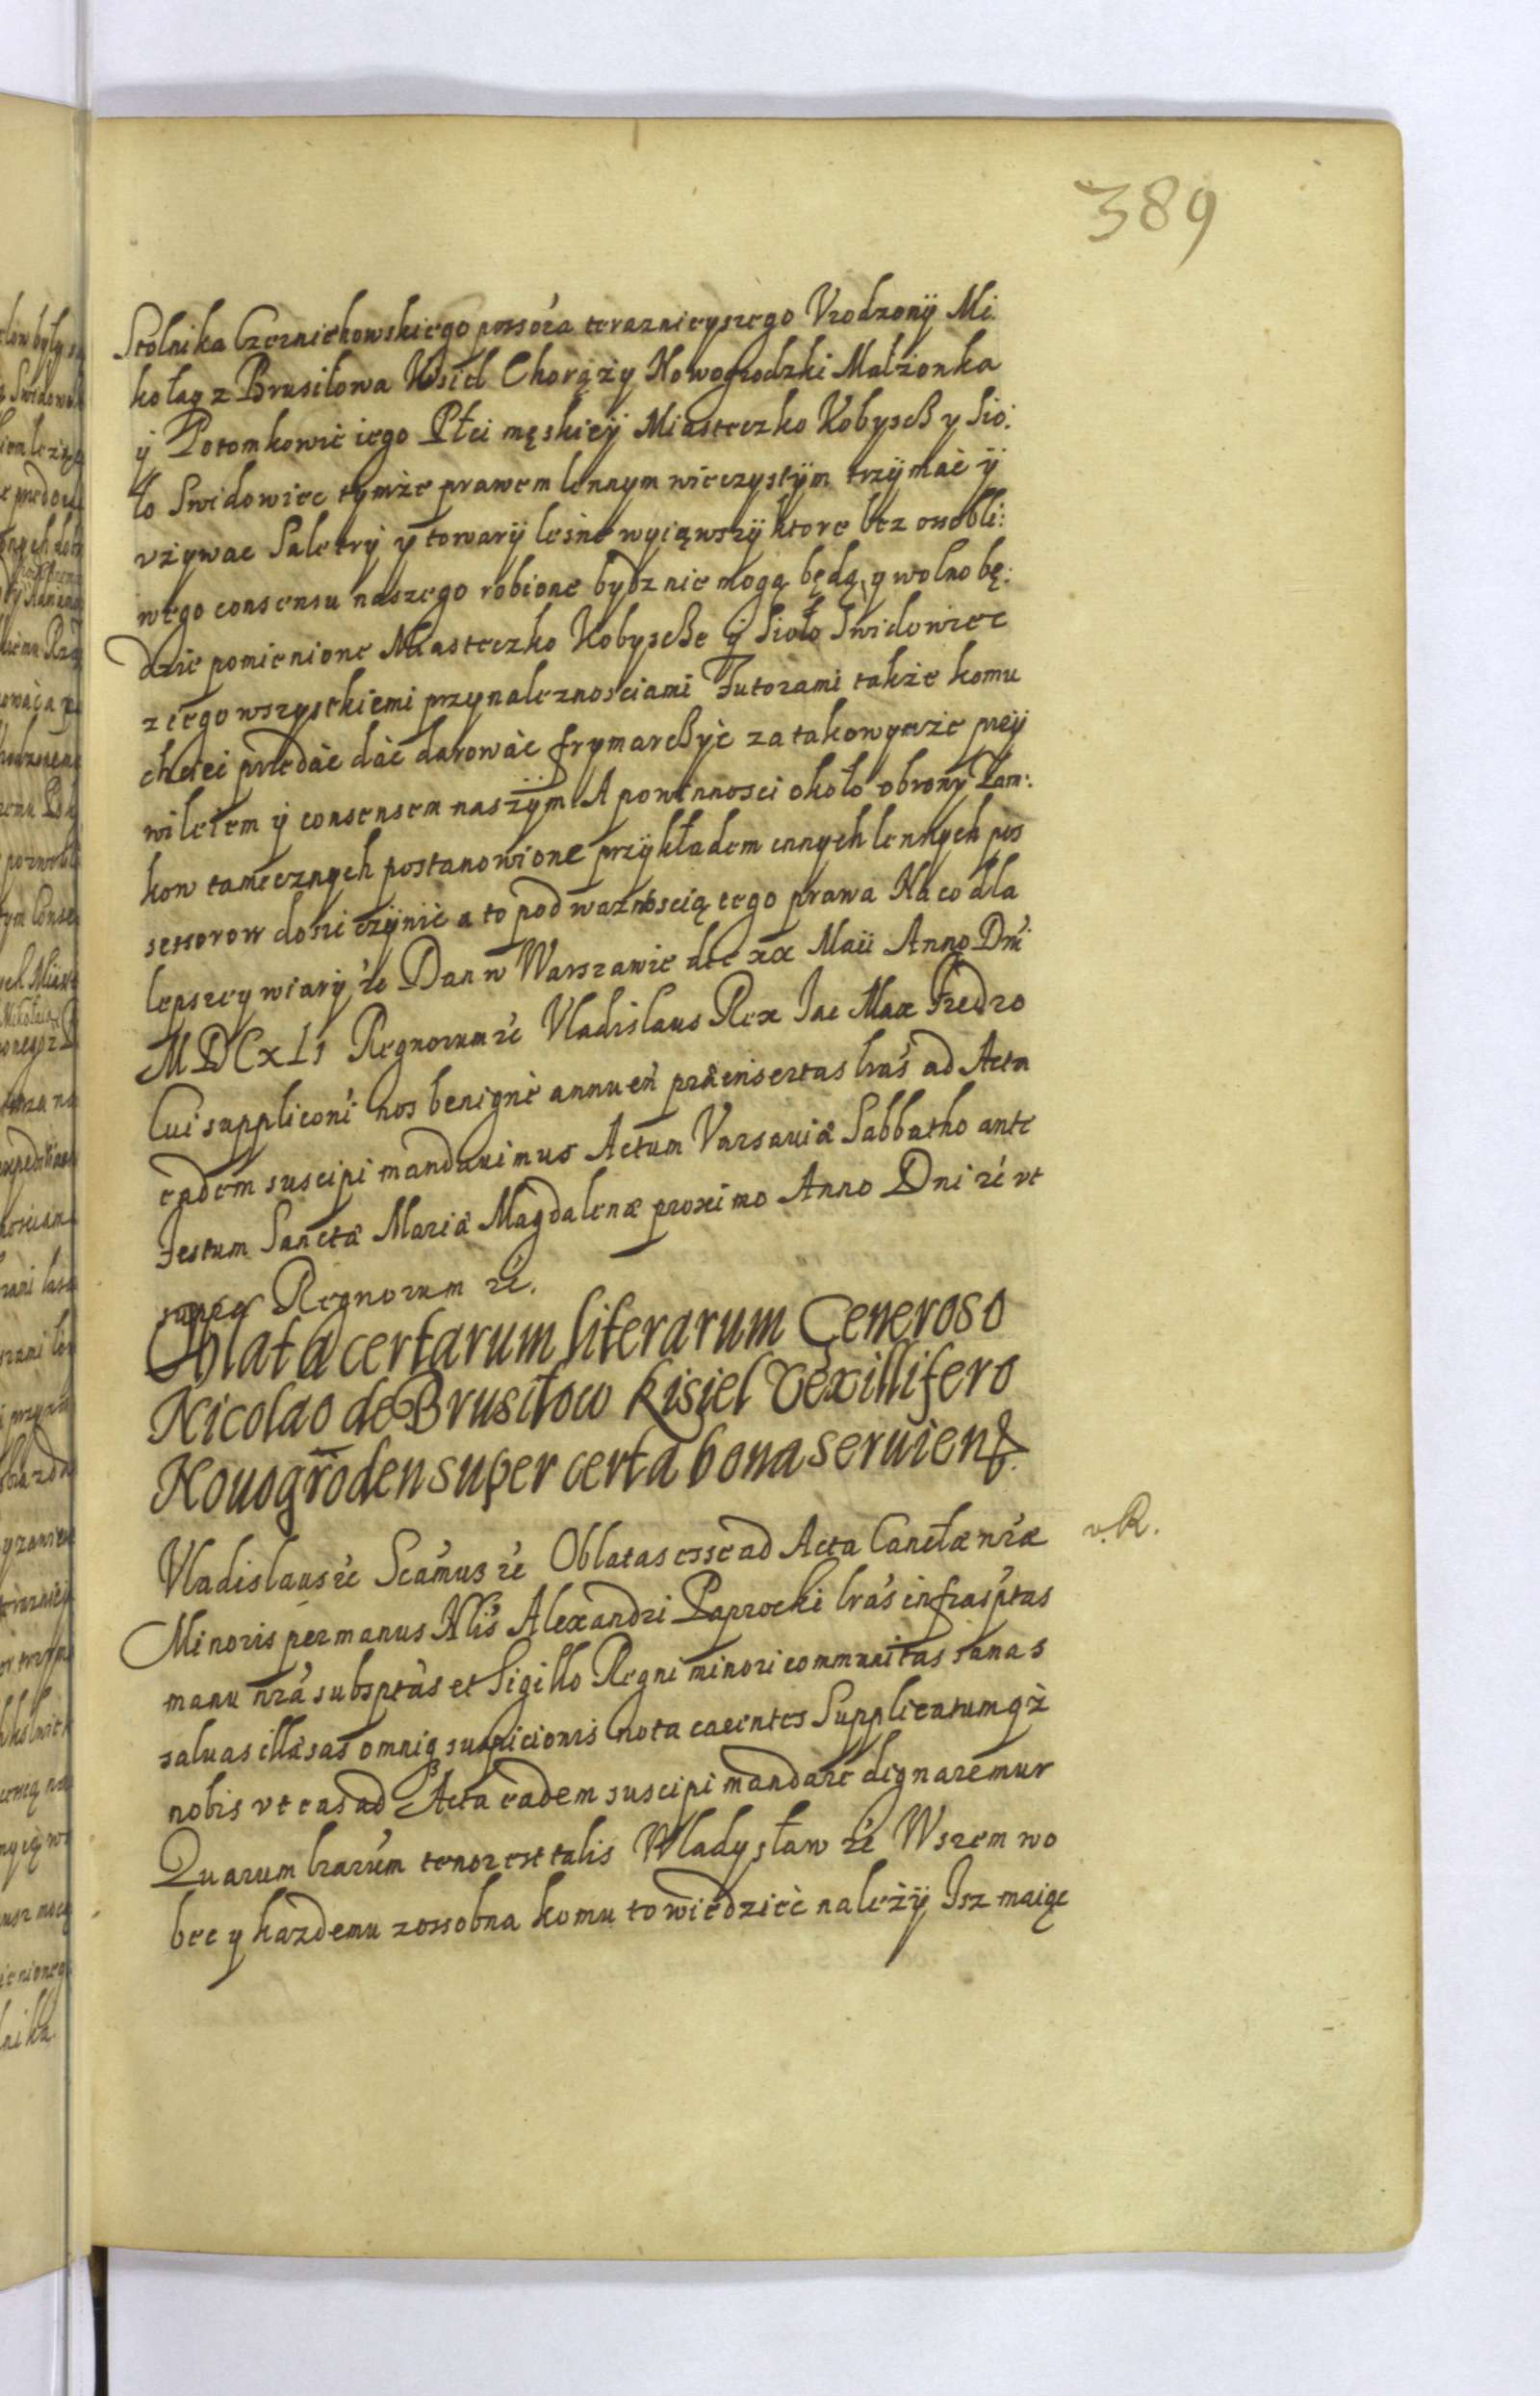 389
Stolnika Czerniechowskiego possora teraznieyszego Vrodzony Mi
kołay z Brusiłowa Kisiel Chorąży Nowogrodzki Małżonka
y Potomkowie iego Płci męskiey Miasteczko Kobyscß y Sio:
ło Swidowiec tymże prawem lennym wieczystÿm trzÿmać ÿ
vżywac Saletrÿ ÿ towarÿ leśne wyiąwszÿ ktore bez ossobli:
wego consensu naszego robione bydz nie mogą będą, y wolno bę:
dzie pomienione Miasteczko Kobyscße ÿ Sioło Swidowiec
z iego wszystkiemi przynaleznosciami Futorami także komu
chcieć przedać dać darować frymarcßyć za takowymże przÿ
wileiem ÿ consensem naszÿm A powinnosci około obrony Zam:
kow tamecznych postanowione przÿkładem innych lennych pos
sessorow dosić czÿnić a to pod waznoscią tego prawa Na co dla
lepszey wiarÿ ꝛc Dan w Warszawie die xx Maii Anno Dni
MDCxLI Regnorum ꝛc Vladislaus Rex Jac Max Fredro
Cui suppliconi nos benigne annuen præinsertas lras ad Acta
eadem suscipi mandauimus Actum Varsauiæ Sabbatho ante
Festum Sanctæ Mariæ Magdalenæ proximo Anno Dni ꝛc vt
supra Regnorum ꝛc.
Oblata certarum literarum Generoso
Nicolao de Brusiłow Kisiel Vexillifero
Nouogroden super certa bona seruien
Vladislaus ꝛc Scamus ꝛc Oblatas esse ad Acta Canctæ nræ
v. R.
Minoris per manus Nlis Alexandri Paprocki lras infrasptas
manu nra subsptas et Sigillo Regni minori communitas sanas
saluas illæsas omniq suspicionis nota carentes Supplicatumq
nobis vt eas ad Acta eadem suscipi mandare dignaremur
Quarum lrarum tenor est talis Władysław ꝛc Wszem wo
bec y każdemu zossobna komu to wiedzieć należÿ Isz maiąc